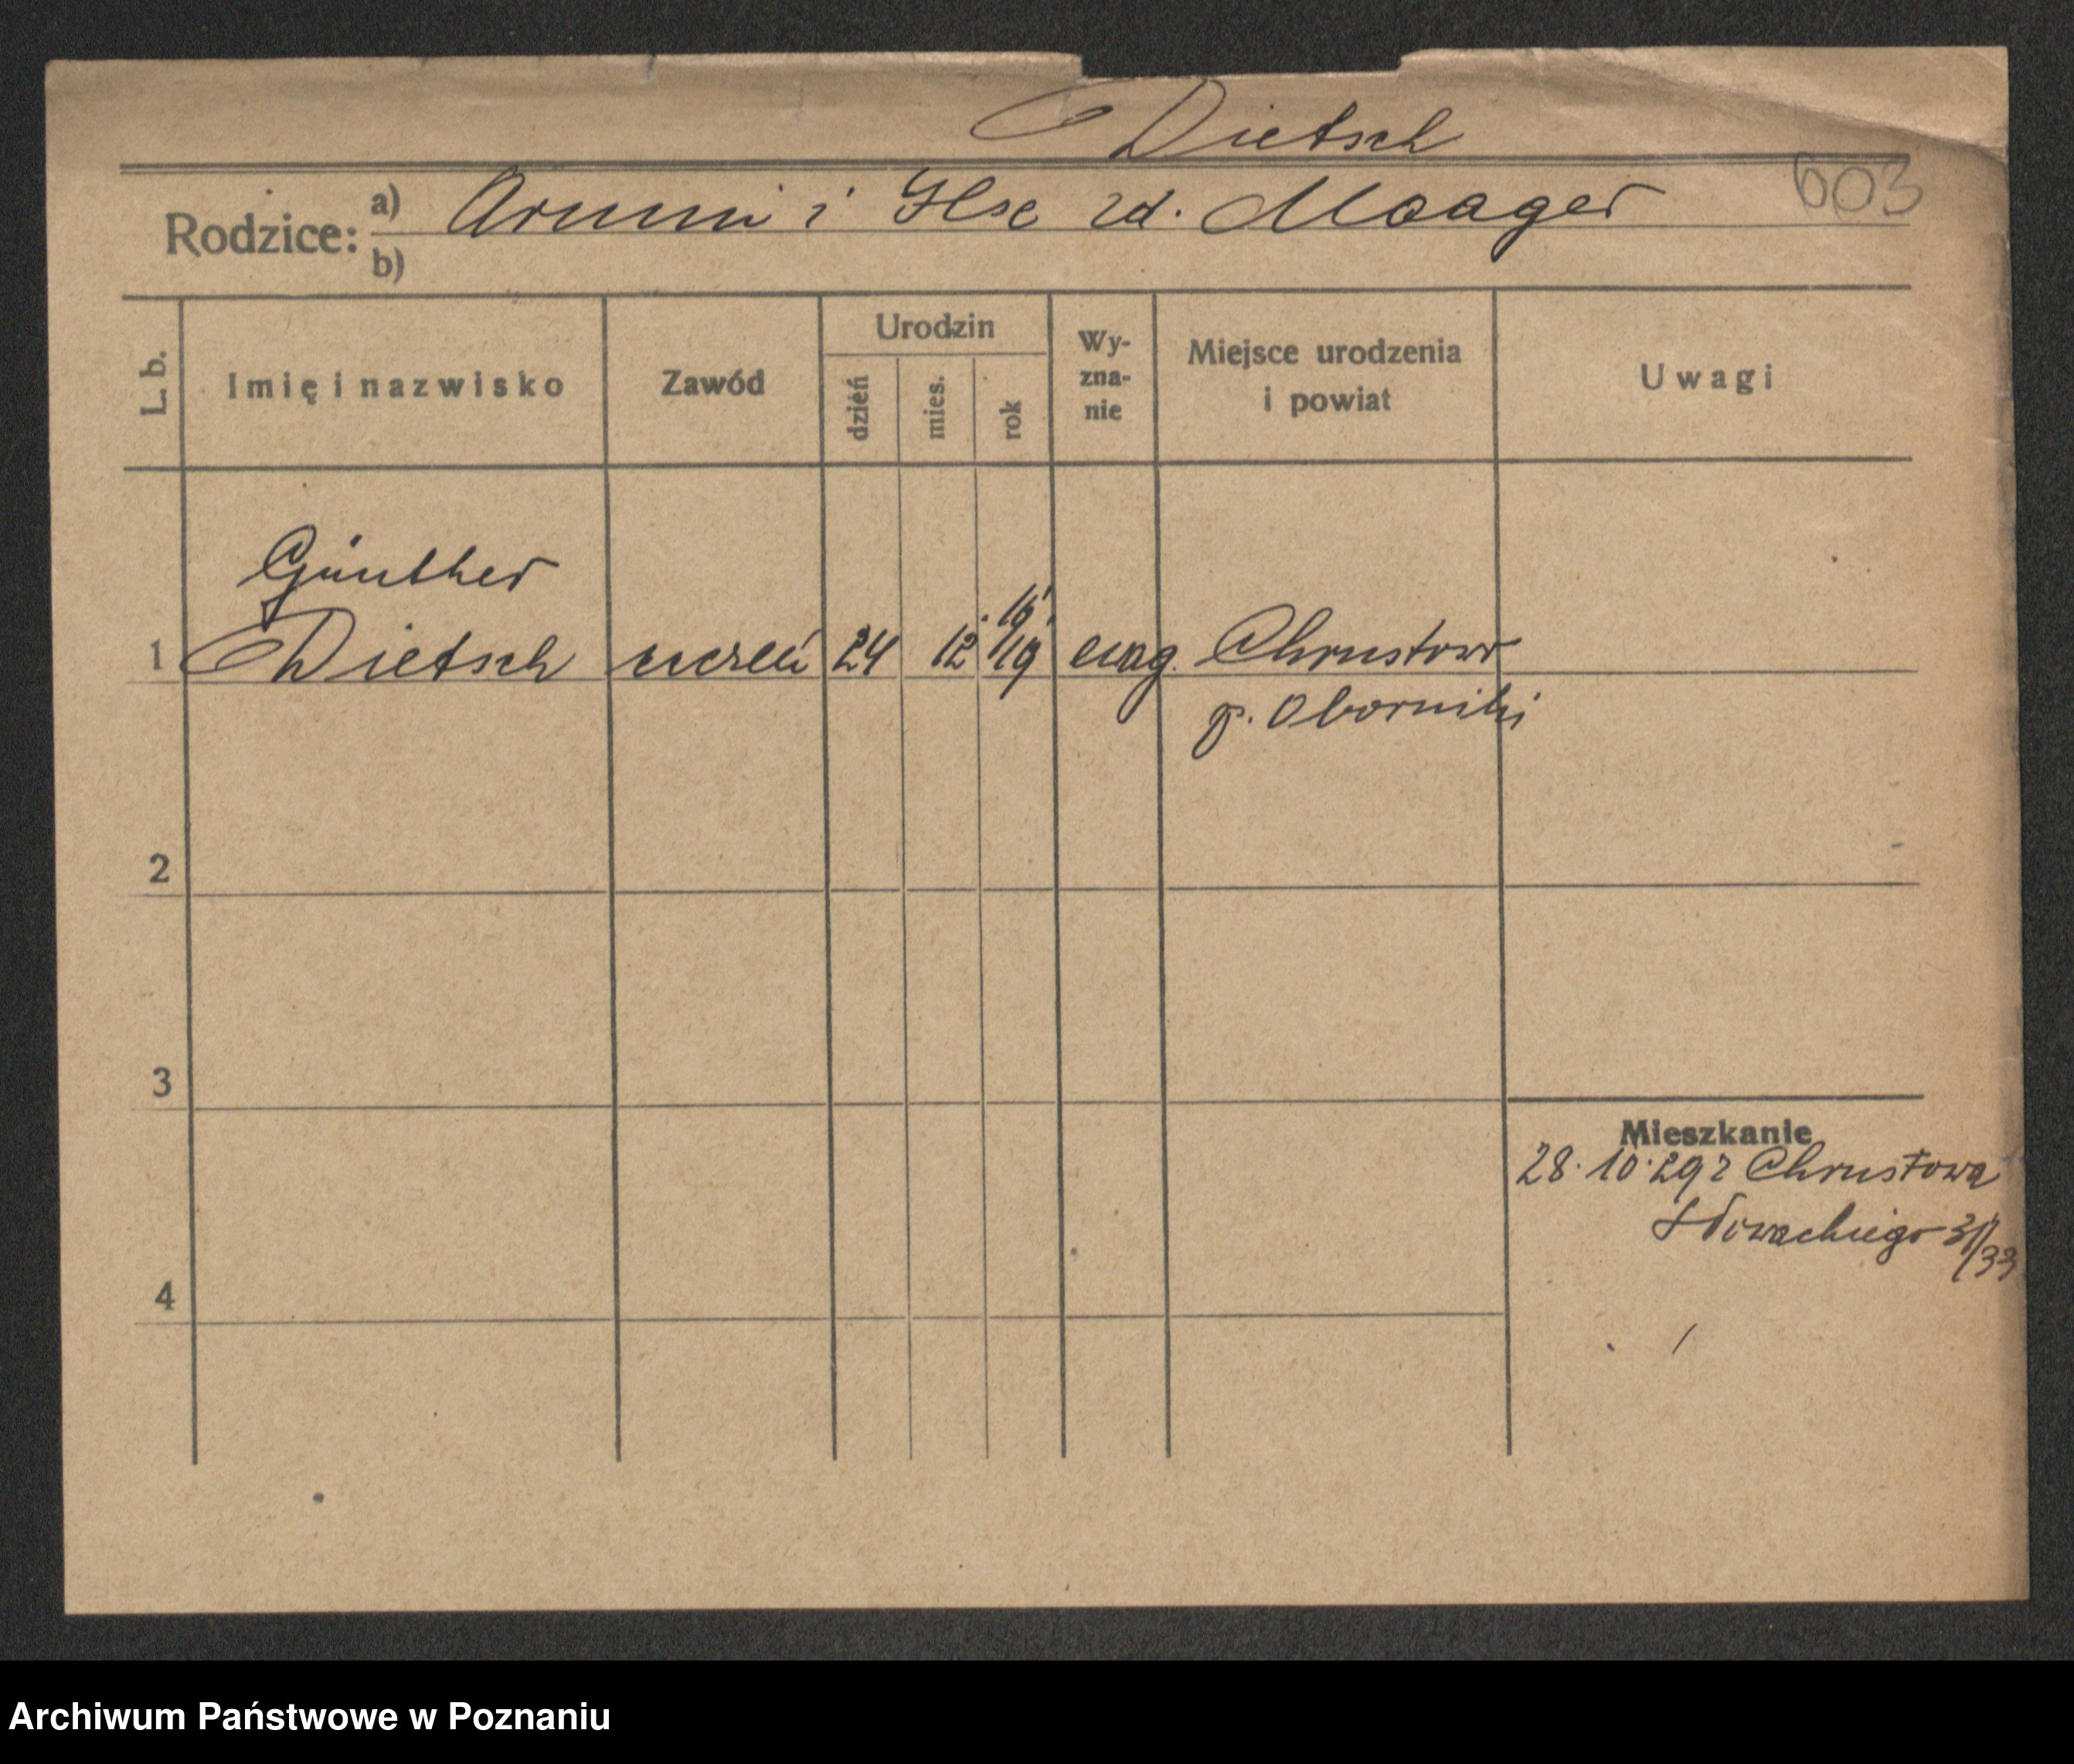 Dietsch
603
Rodzice: a) Armin i Ilse zd. Maager
b)
L. b. Imię i nazwisko Zawód Urodzin dzień mies. rok Wy-zna-nie Miejsce urodzenia i powiat Uwagi
Günther
16
1 Dietsch uczeń 24 12 19 ewag. Chrustowo
p. Oborniki
2
3
Mieszkanie
28.10.29 z Chrustowa
Słowackiego 31/33
4
Archiwum Państwowe w Poznaniu